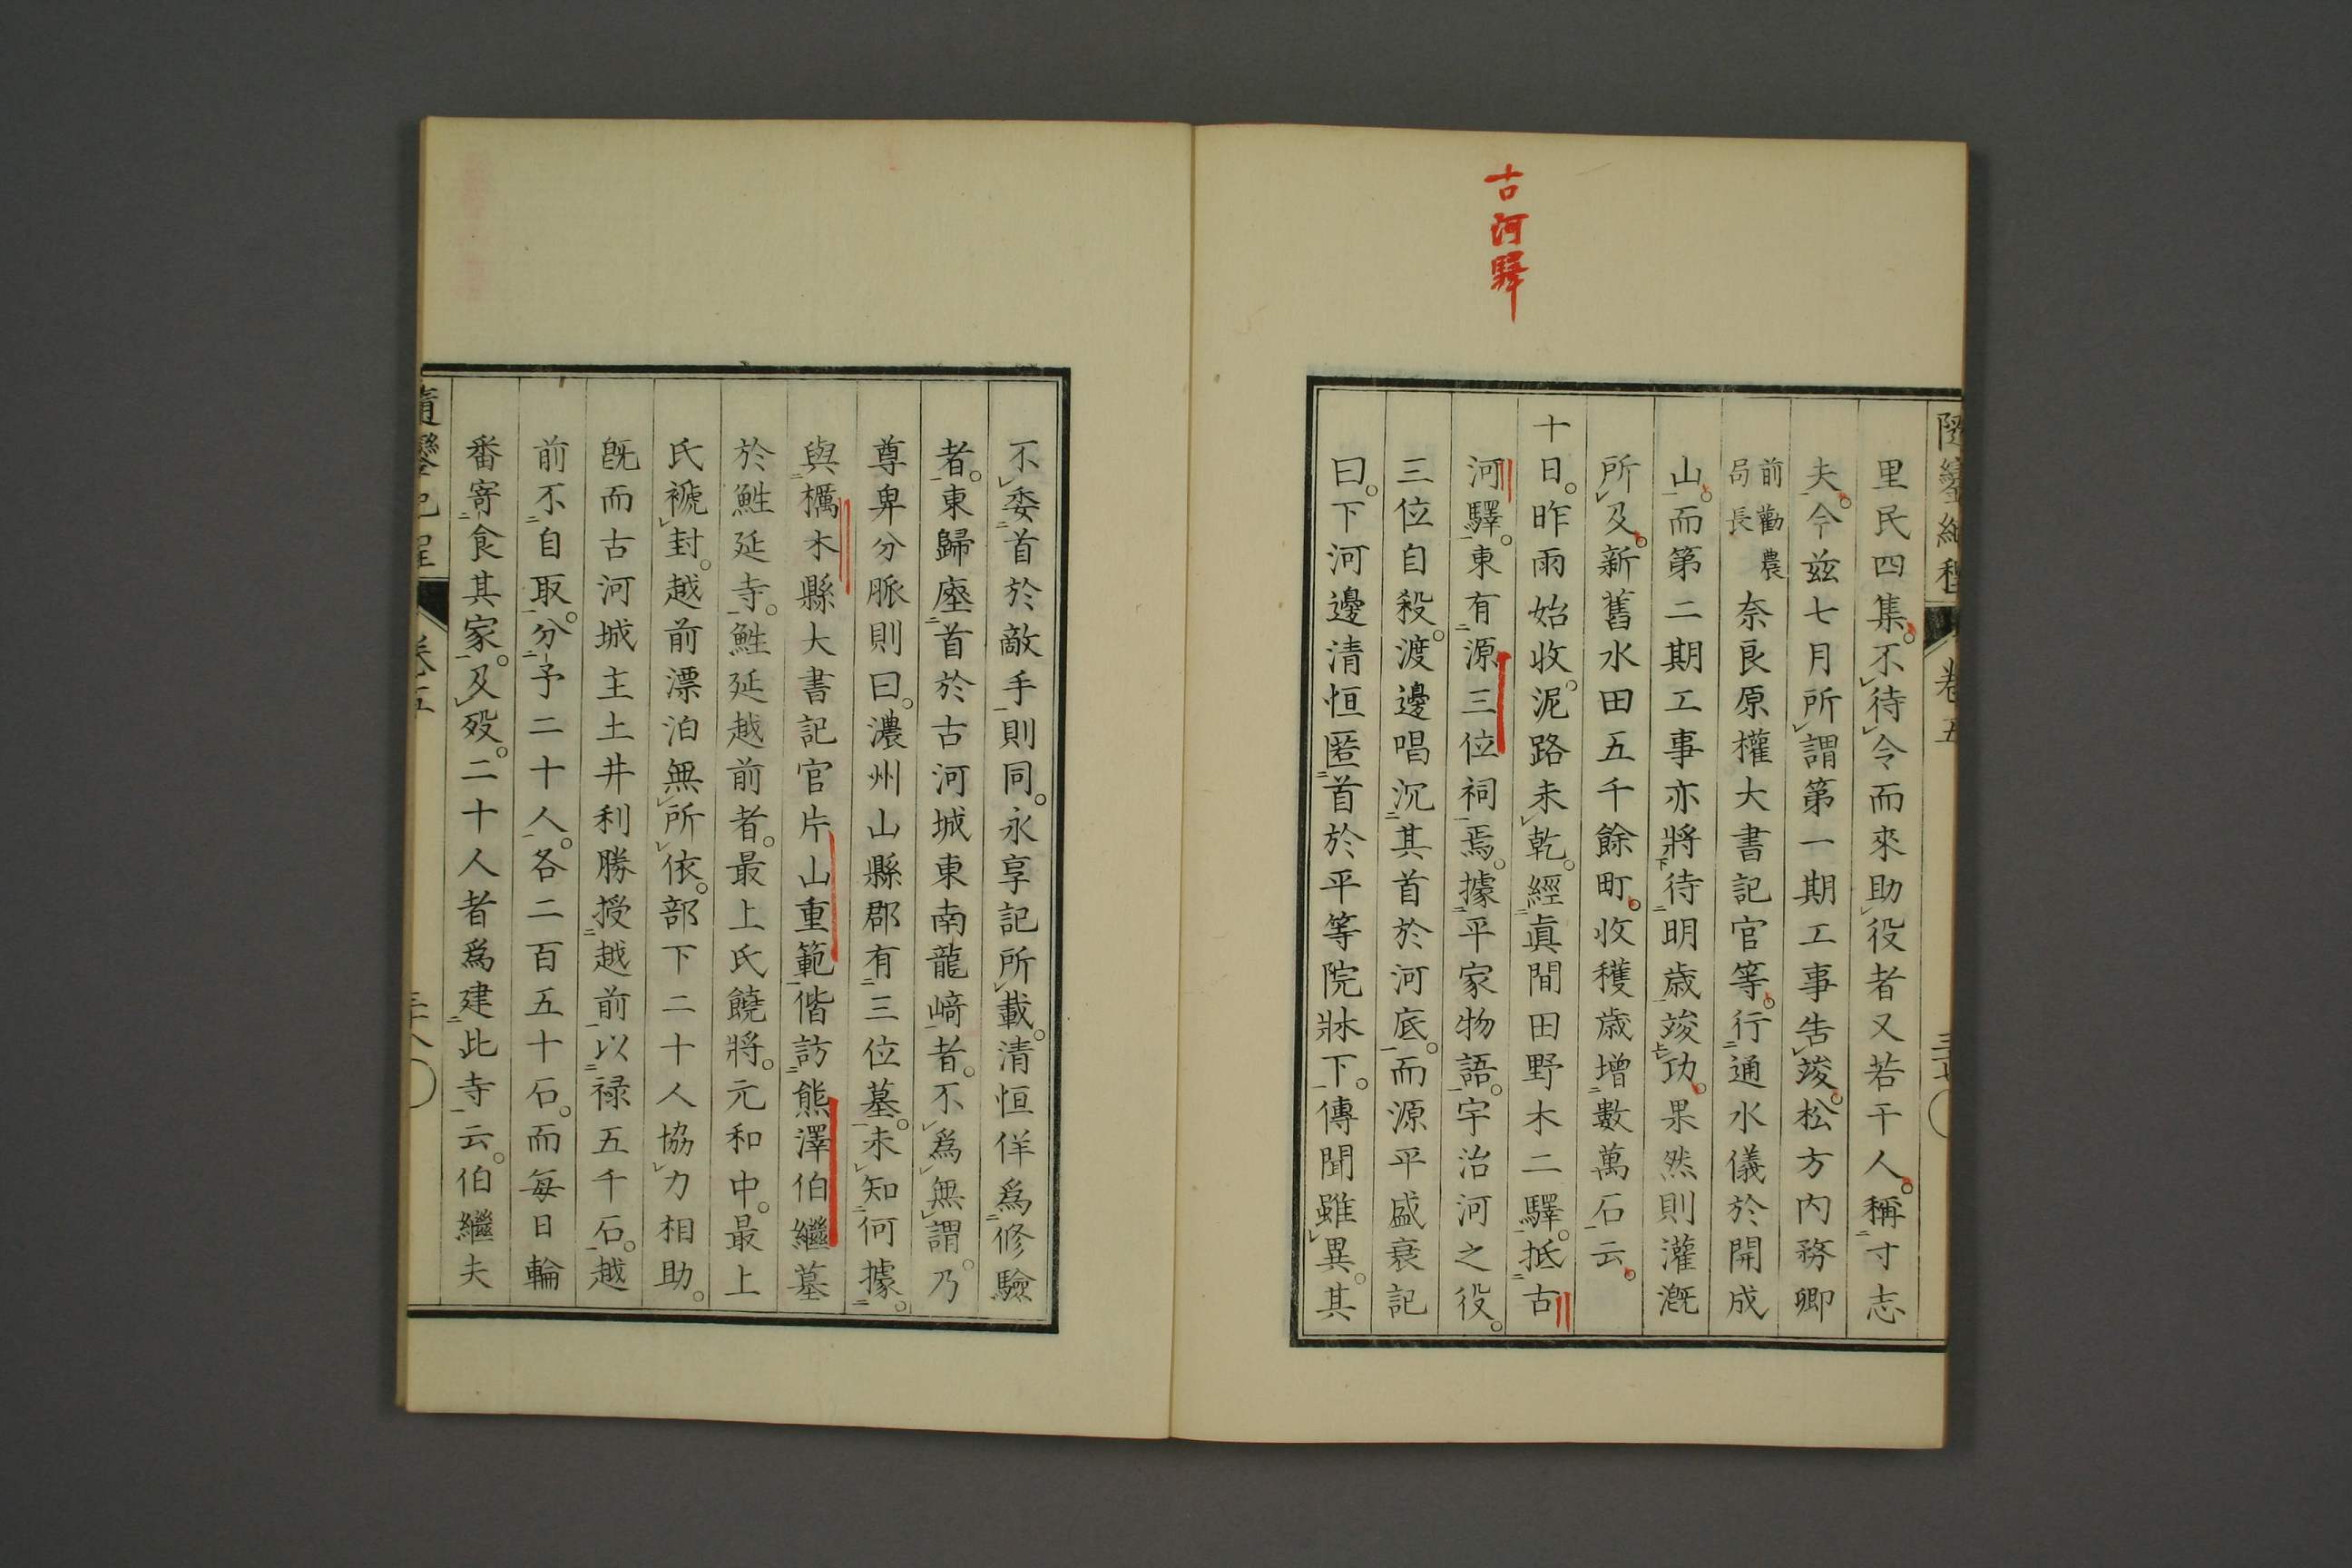 古河驛
隨鑾紀程 卷五
里民四集。不待令而來助役者又若干人。稱寸志
夫。今玆七月所謂第一期工事告竣。松方內務卿
前勸農局長奈良原權大書記官等。行通水儀於開成
山。而第二期工事亦將待明歲竣功。果然則灌漑
所及。新舊水田五千餘町。收穫歲增數萬石云。
十日。昨雨始收。泥路未乾。經眞間田野木二驛。抵古
河驛。東有源三位祠焉。據平家物語。宇治河之役。
三位自殺。渡邊唱沉其首於河底。而源平盛衰記
曰。下河邊淸恒匿首於平等院牀下。傳聞雖異。其
不委首於敵手則同。永享記所載。清恒佯爲修驗
者。東歸壓首於古河城東南龍﨑者。不爲無謂。乃
尊卑分脈則曰。濃州山縣郡有三位墓。未知何據。
與櫔木縣大書記官片山重範偕訪熊澤伯繼墓
於鮏延寺。鮏延越前者。最上氏饒將。元和中。最上
氏褫封。越前漂泊無所依。部下二十人協力相助。
旣而古河城主土井利勝授越前以祿五千石。越
前不自取。分予二十人。各二百五十石。而每日輪
番寄食其家。及歿。二十人者爲建此寺云。伯繼夫
隨鑾紀程 卷五